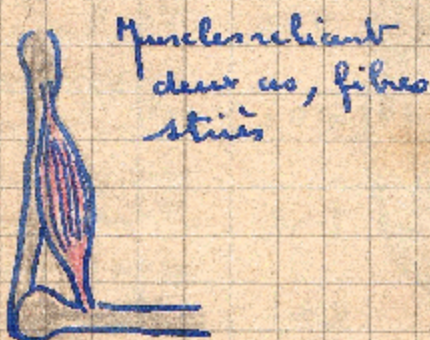 Muscles reliant
deux os, fibres
striés